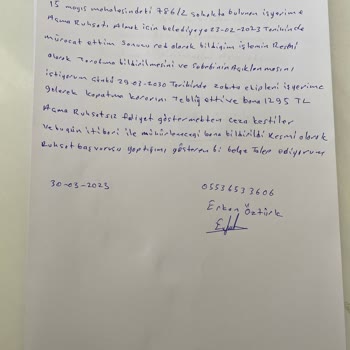 15 mayıs mahalesindeki 786/2 sokakta bulunan işyerime
Açma Ruhsatı Almak için belediyeye 23-02-2023 Tarihinde
müracat ettim Sonucu red olarak bildiğim işlemin Resmi
olarak Tarafıma bildirilmesini ve Sebebinin Açıklanmasını
istiyorum Çünki 29-03-2030 Tarihinde zabıta ekipleri işyerime
gelerek kapatma kararını Tebliğ etti ve bana 1295 TL
Açma Ruhsatsız faliyet göstermekten ceza kestiler
ve bugün itibari ile mühürleneceği bana bildirildi Resmi olarak
Ruhsat başvurusu yaptığımı gösteren bi belge Talep ediyorum
30-03-2023
05536533606
Erkan Öztürk